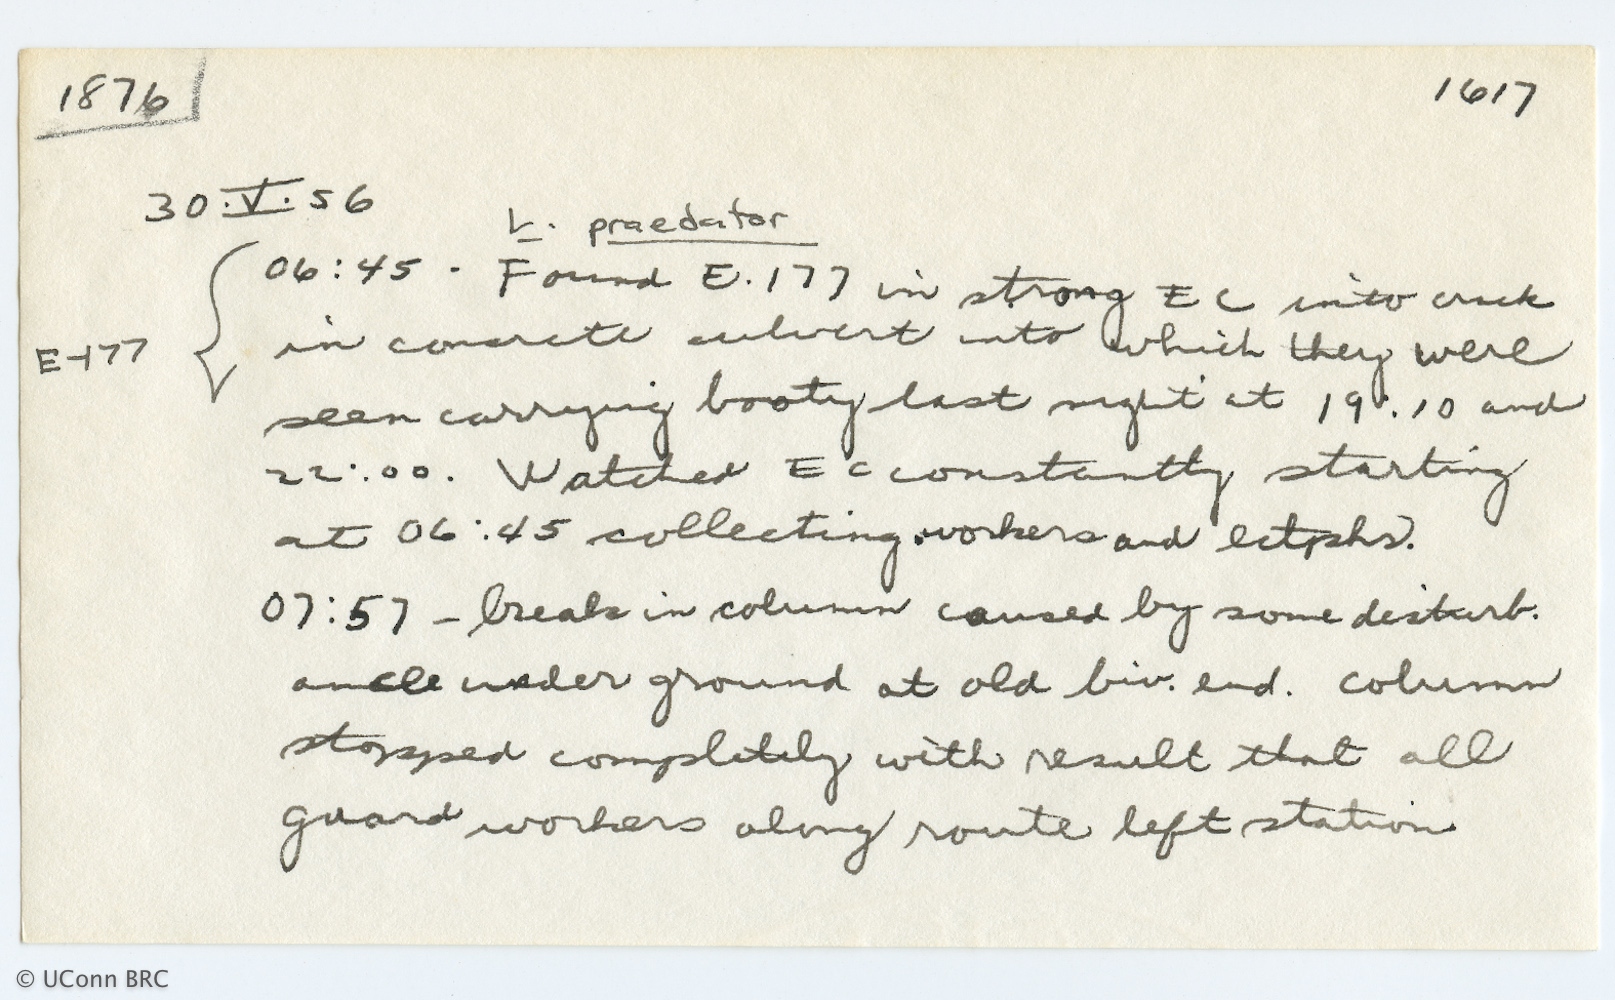 1876
1617
30.V.56
L. praedator
06:45 - Found E.177 in strong EC into crack
E-177
in concrete culvert into which they were
seen carrying booty last night at 19:10 and
22:00. Watched EC constantly starting
at 06:45 collecting workers and ectophs.
07:57 - break in column caused by some disturb.
ance under ground at old biv. end. Column
stopped completely with result that all
guard workers along route left station
© UConn BRC